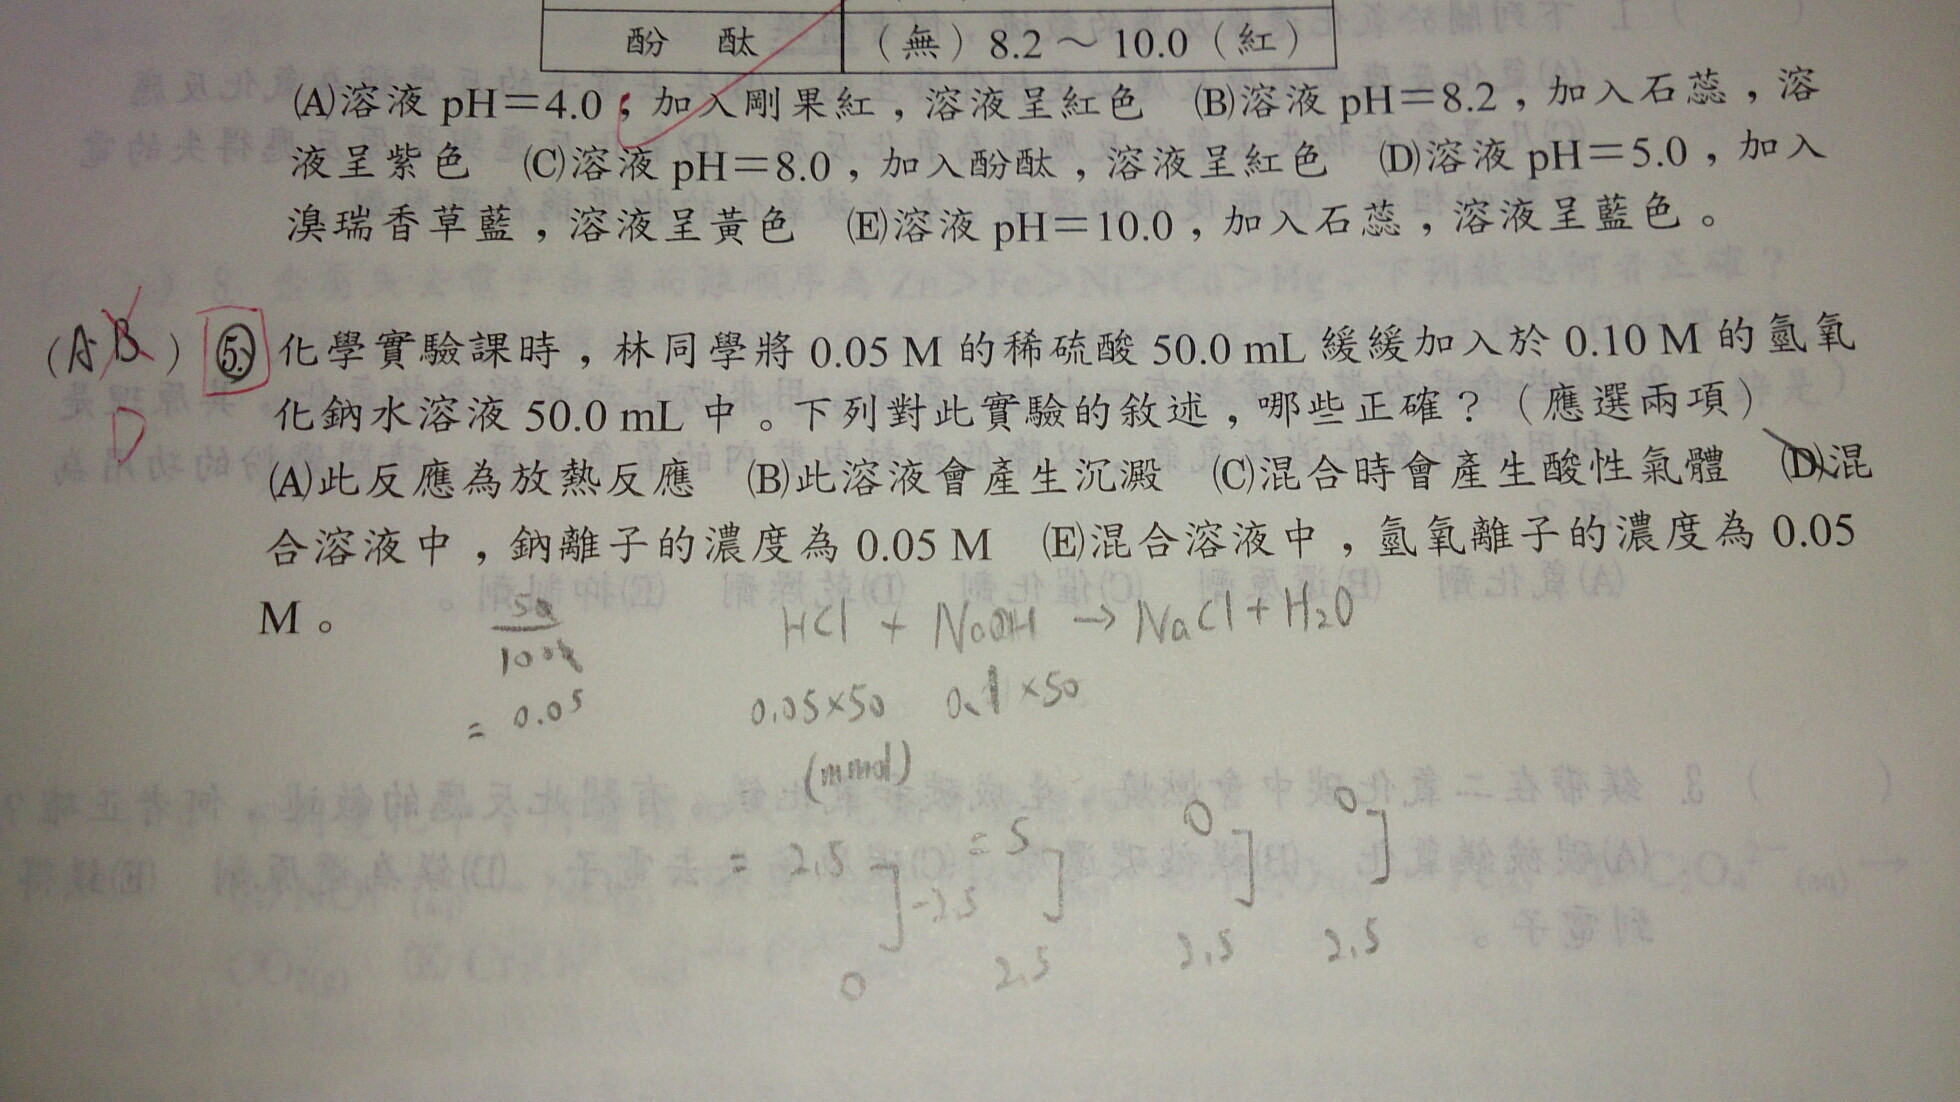 酚 酞 （無）8.2～10.0（紅）
(A)溶液 pH＝4.0，加入剛果紅，溶液呈紅色 (B)溶液 pH＝8.2，加入石蕊，溶
液呈紫色 (C)溶液 pH＝8.0，加入酚酞，溶液呈紅色 (D)溶液 pH＝5.0，加入
溴瑞香草藍，溶液呈黃色 (E)溶液 pH＝10.0，加入石蕊，溶液呈藍色。
(AB) 5. 化學實驗課時，林同學將 0.05 M 的稀硫酸 50.0 mL 緩緩加入於 0.10 M 的氫氧
D 化鈉水溶液 50.0 mL 中。下列對此實驗的敘述，哪些正確？（應選兩項）
(A)此反應為放熱反應 (B)此溶液會產生沉澱 (C)混合時會產生酸性氣體 (D)混
合溶液中，鈉離子的濃度為 0.05 M (E)混合溶液中，氫氧離子的濃度為 0.05
M。
HCl + NaOH → NaCl + H2O
= 0.05 0.05×50 0.1×50
(mmol)
= 2.5 = 5 0 0
-2.5
0 2.5 2.5 2.5